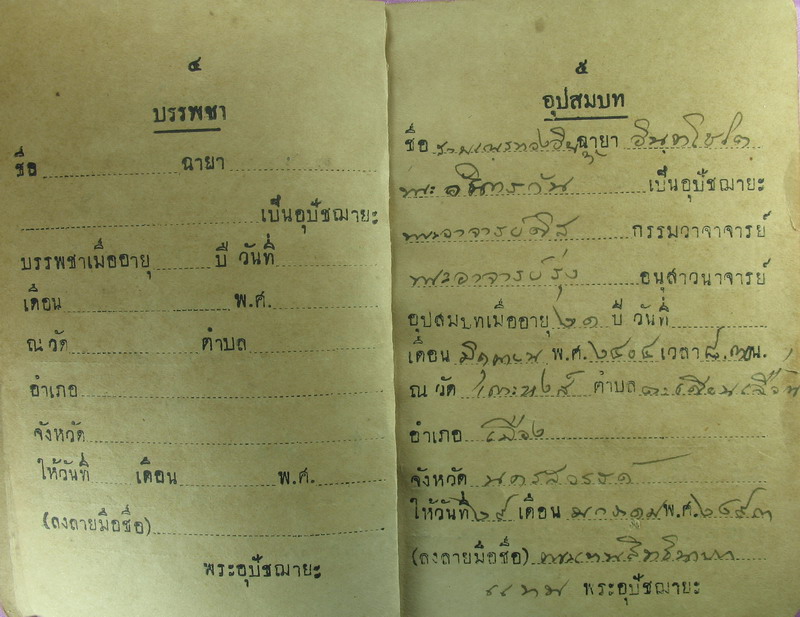 ๔
บรรพชา
ชื่อ ฉายา
เป็นอุปัชฌายะ
บรรพชาเมื่ออายุ ปี วันที่
เดือน พ.ศ.
ณ วัด ตำบล
อำเภอ
จังหวัด
ให้วันที่ เดือน พ.ศ.
(ลงลายมือชื่อ)
พระอุปัชฌายะ
๕
อุปสมบท
ชื่อ ฉายา อินฺทโชโต
พระ เป็นอุปัชฌายะ
พระอาจารย์ กรรมวาจาจารย์
พระอาจารย์รุ่ง อนุสาวนาจารย์
อุปสมบทเมื่ออายุ ๒๑ ปี วันที่
เดือน มิถุนายน พ.ศ. เวลา น.
ณ วัด ตำบล
อำเภอ เมือง
จังหวัด นครสวรรค์
ให้วันที่ ๒๙ เดือน พ.ศ. ๒๔๙๓
(ลงลายมือชื่อ)
แทน พระอุปัชฌายะ